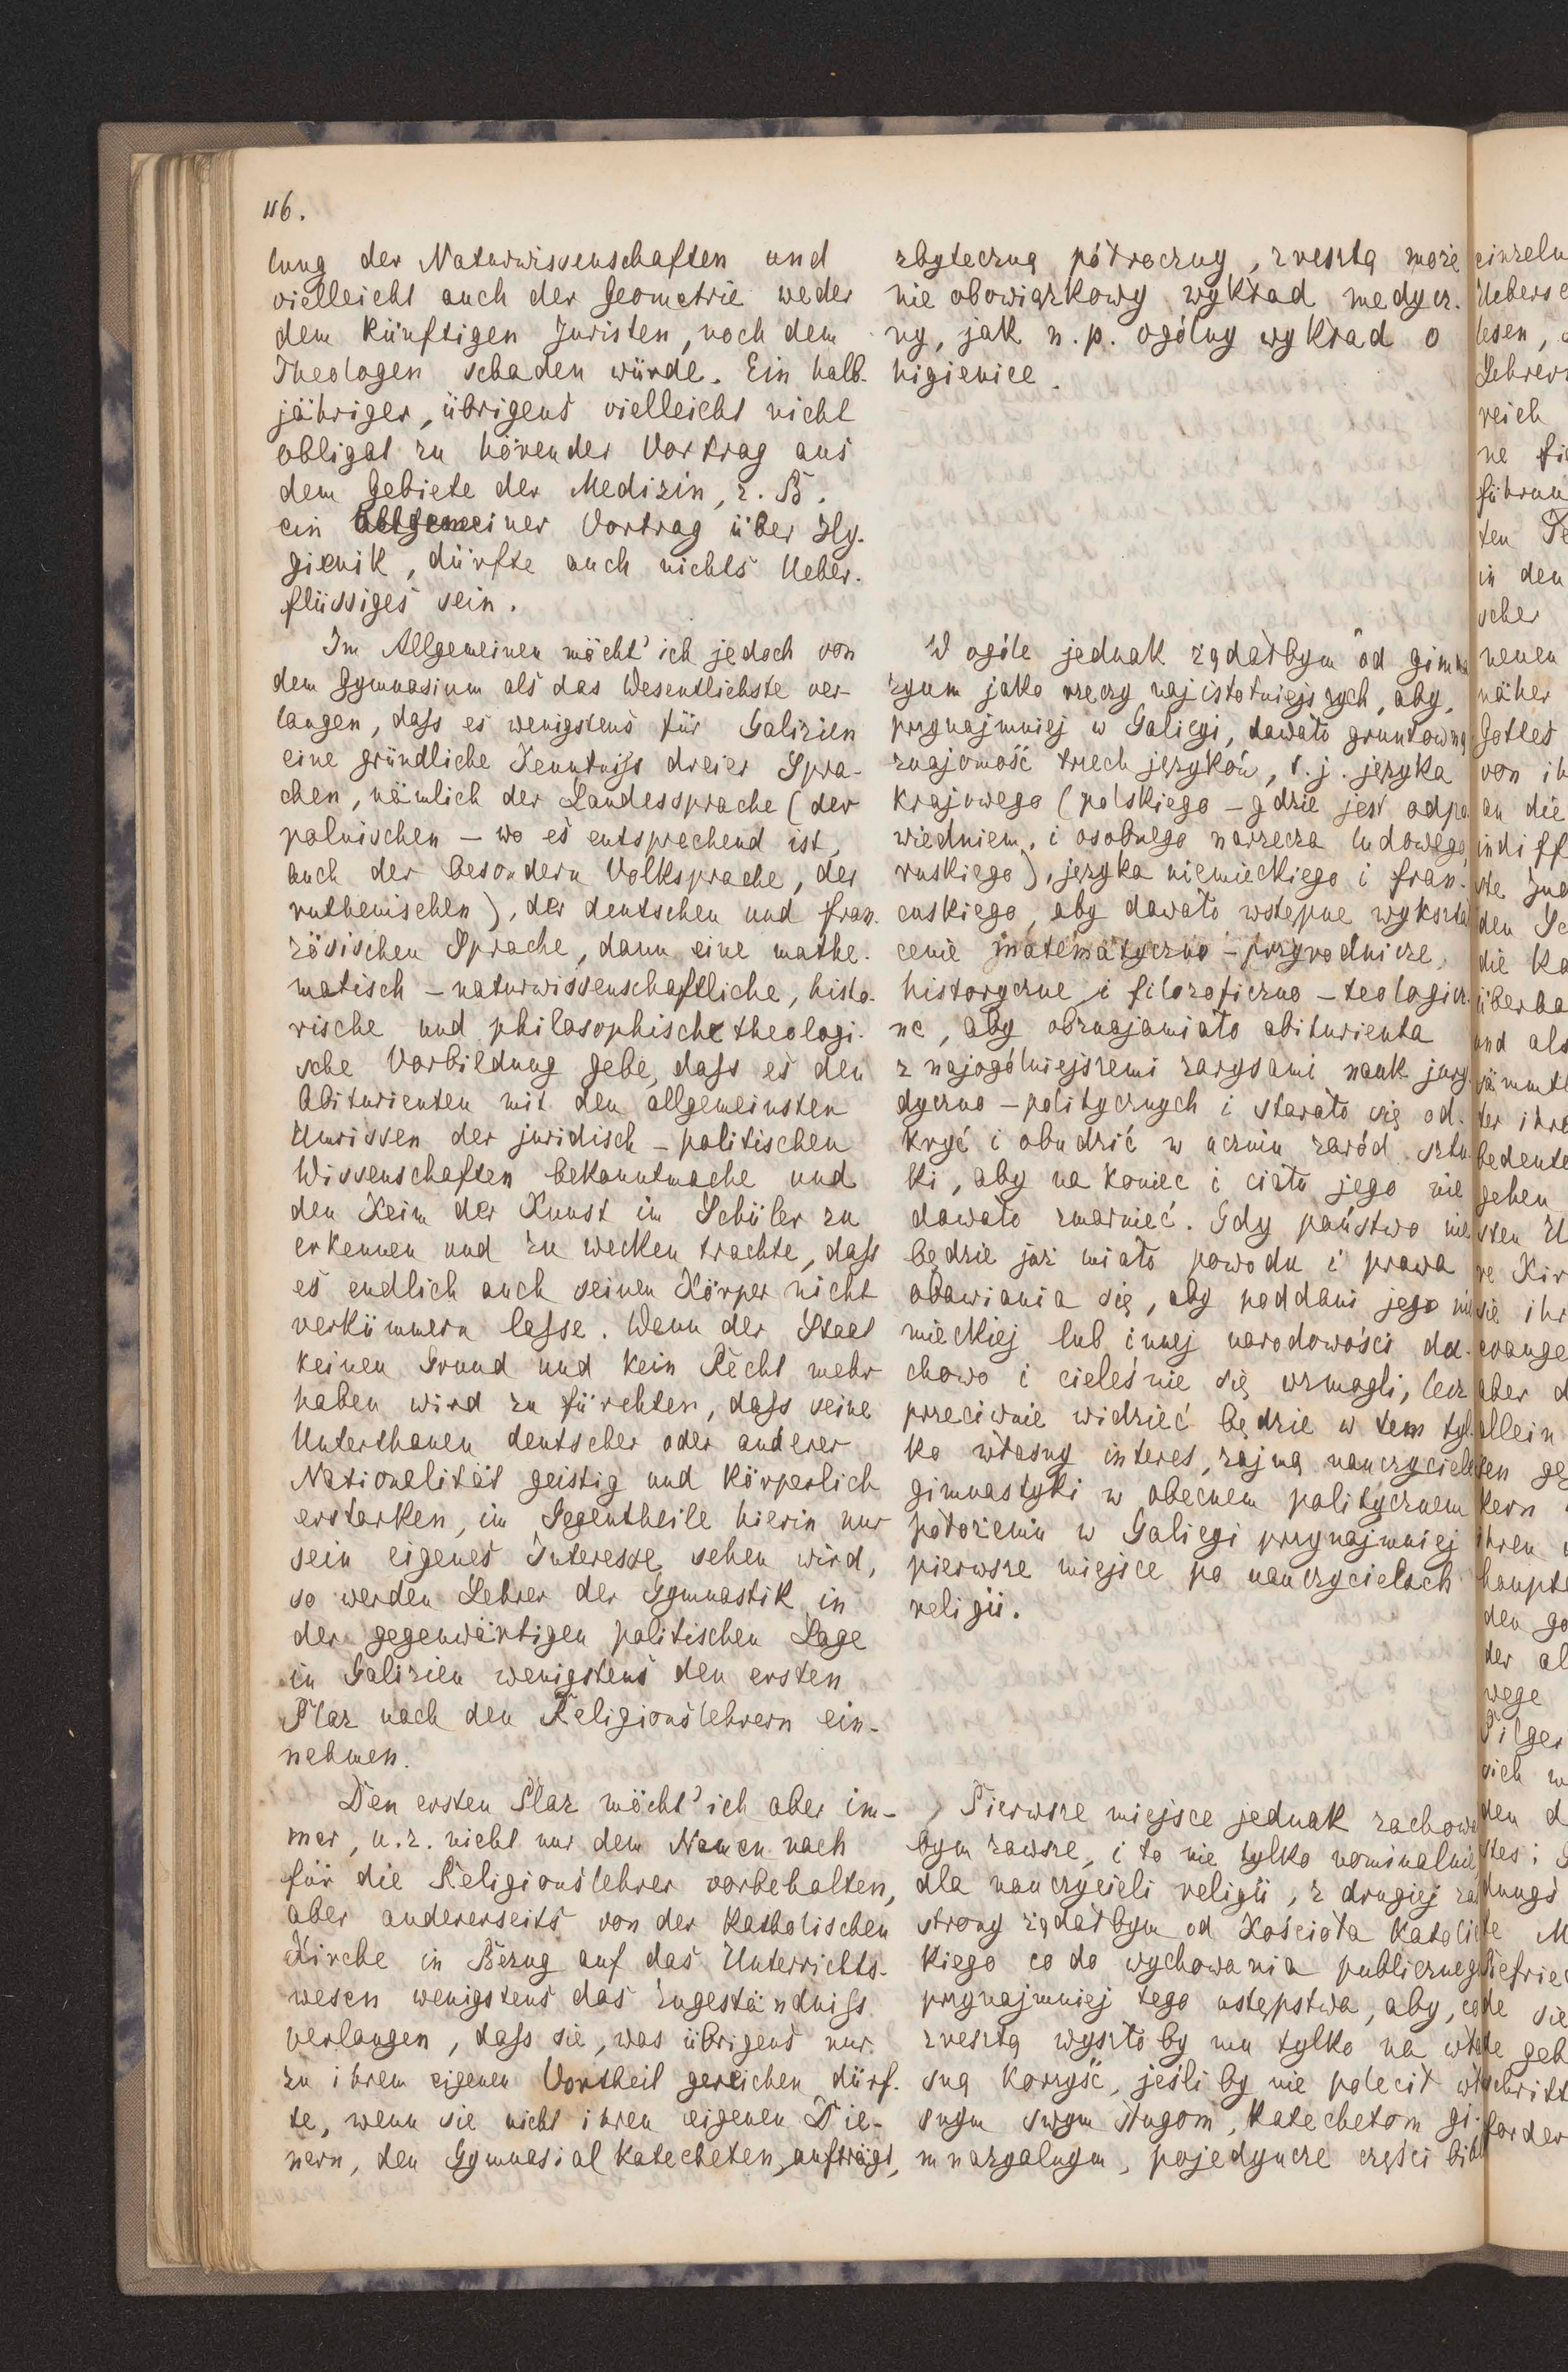 116.
lung der Naturwissenschaften und
vielleicht auch der Geometrie weder
dem künftigen Juristen, noch dem
Theologen schaden würde. Ein halb-
jähriger, übrigens vielleicht nicht
obligat zu hörender Vortrag aus
dem Gebiete der Medizin, z. B.
ein allgemeiner Vortrag über Hy-
gienik, dürfte auch nichts Ueber-
flüssiges sein.
Im Allgemeinen möcht' ich jedoch von
dem Gymnasium als das Wesentlichste ver-
langen, dass es wenigstens für Galizien
eine gründliche Kenntniss dreier Spra-
chen, nämlich der Landessprache (der
polnischen – wo es entsprechend ist,
auch der besondern Volksprache, der
ruthenischen), der deutschen und fran-
zösischen Sprache, dann eine mathe-
matisch – naturwissenschaftliche, histo-
rische und philosophische theologi-
sche Vorbildung gebe, dass es den
Abiturienten mit den allgemeinsten
Umrissen der juridisch – politischen
Wissenschaften bekanntmache und
den Keim der Kunst im Schüler zu
erkennen und zu wecken trachte, dass
es endlich auch seinen Körper nicht
verkümmern lasse. Wenn der Staat
keinen Grund und kein Recht mehr
haben wird zu fürchten, dass seine
Unterthanen deutscher oder anderer
Nationalität geistig und körperlich
erstarken, im Gegentheile hierin nur
sein eigenes Interesse sehen wird,
so werden Lehrer der Gymnastik in
der gegenwärtigen politischen Lage
in Galizien wenigstens den ersten
Plaz nach den Religionslehrern ein-
nehmen.
Den ersten Plaz möcht' ich aber im-
mer, u. z. nicht nur dem Namen nach
für die Religionslehrer vorbehalten,
aber andererseits von der katholischen
Kirche in Bezug auf das Unterrichts-
wesen wenigstens das Zugeständniss
verlangen, dass sie, was übrigens nur
zu ihrem eigenen Vortheil gereichen dürf-
te, wenn sie nicht ihren eigenen Die-
nern, den Gymnasialkatecheten, aufträgt,
zbyteczną półroczny, zresztą może
nie obowiązkowy wykład medycz-
ny, jak n. p. ogólny wykład o
higienice.
W ogóle jednak żądałbym od gimna
zyum jako rzeczy najistotniejszych, aby,
przynajmniej w Galicyi, dawało gruntowną
znajomość trzech języków, t. j. języka
krajowego (polskiego – gdzie jest odpo
wiedniem, i osobnego narzecza ludowego,
ruskiego), języka niemieckiego i fran-
cuskiego, aby dawało wstępne wykształ
cenie matematyczno – przyrodnicze,
historyczne i filozoficzno – teologicz-
ne, aby obznajamiało abiturienta
z najogólniejszemi zarysami nauk jury
dyczno – politycznych i starało się od-
kryć i obudzić w uczniu zaród sztu-
ki, aby na koniec i ciału jego nie
dawało zmarnieć. Gdy państwo nie
będzie już miało powodu i prawa
obawiania się, aby poddani jego nie
mieckiej lub innej narodowości du-
chowo i cieleśnie się wzmogli, lecz
przeciwnie widzieć będzie w tem tyl-
ko własny interes, zajmą nauczyciele
gimnastyki w obecnem politycznem
położeniu w Galicyi przynajmniej
pierwsze miejsce po nauczycielach
religii.
Pierwsze miejsce jednak zachował
bym zawsze, i to nie tylko nominalnie,
dla nauczycieli religii, z drugiej zaś
strony żądałbym od Kościoła katolic
kiego co do wychowania publicznego
przynajmniej tego ustępstwa, aby, co
zresztą wyszło by mu tylko na wła
sną korzyść, jeśli by nie polecił wła
snym swym sługom, katechetom gi-
mnazyalnym, pojedyncze części bibl
einzeln
Uebers
lesen,
Lehrer
reich
ne
führun
ten
in den
scher
neuen
näher
Gottes
von ih
an die
indiff
ste
den
die Ka
überha
und als
sämmt
ter ihre
bedeute
gehen
sten U
re Kir
sie ihr
evange
aber d
allein
ten ge
kern
ihren
haupt
den go
der al
wege
Pilger
sich w
den d
stes;
dungs
te M
tiefrie
de sie
te geh
schrift
forder